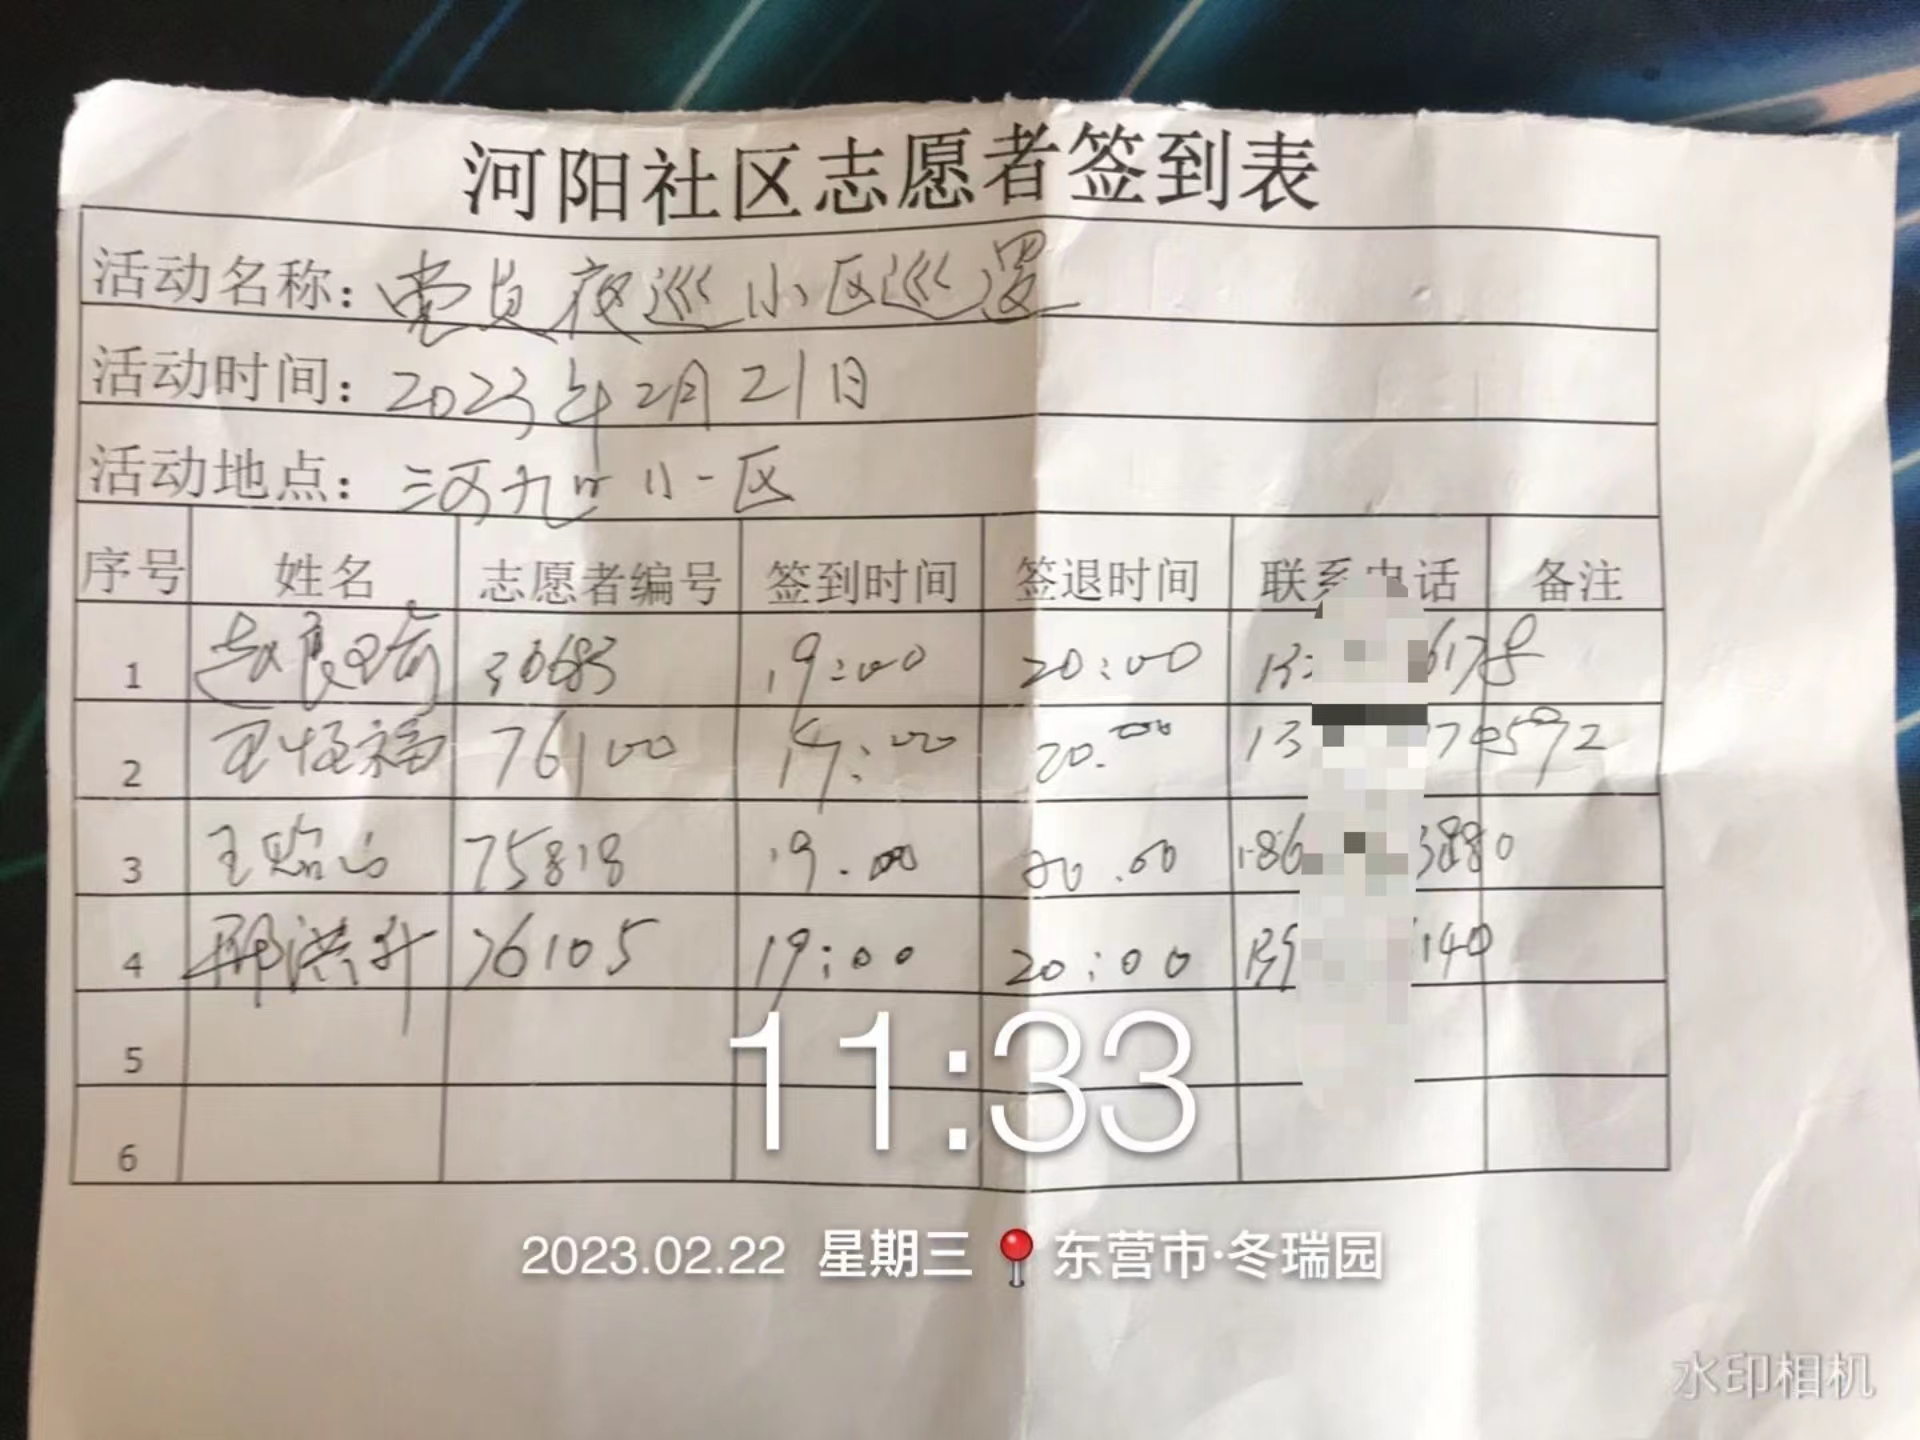 河阳社区志愿者签到表
活动名称：党员夜巡小区巡逻
活动时间：2023年2月21日
活动地点：河 小区
序号 姓名 志愿者编号 签到时间 签退时间 联系电话 备注
1 赵良 30683 19:00 20:00 13 617
2 王恒福 76100 19:00 20:00 13 70592
3 王 75818 19.00 20.00 186 3880
4 邢洪升 76105 19:00 20:00 139 140
5
6
11:33
2023.02.22 星期三 东营市·冬瑞园
水印相机